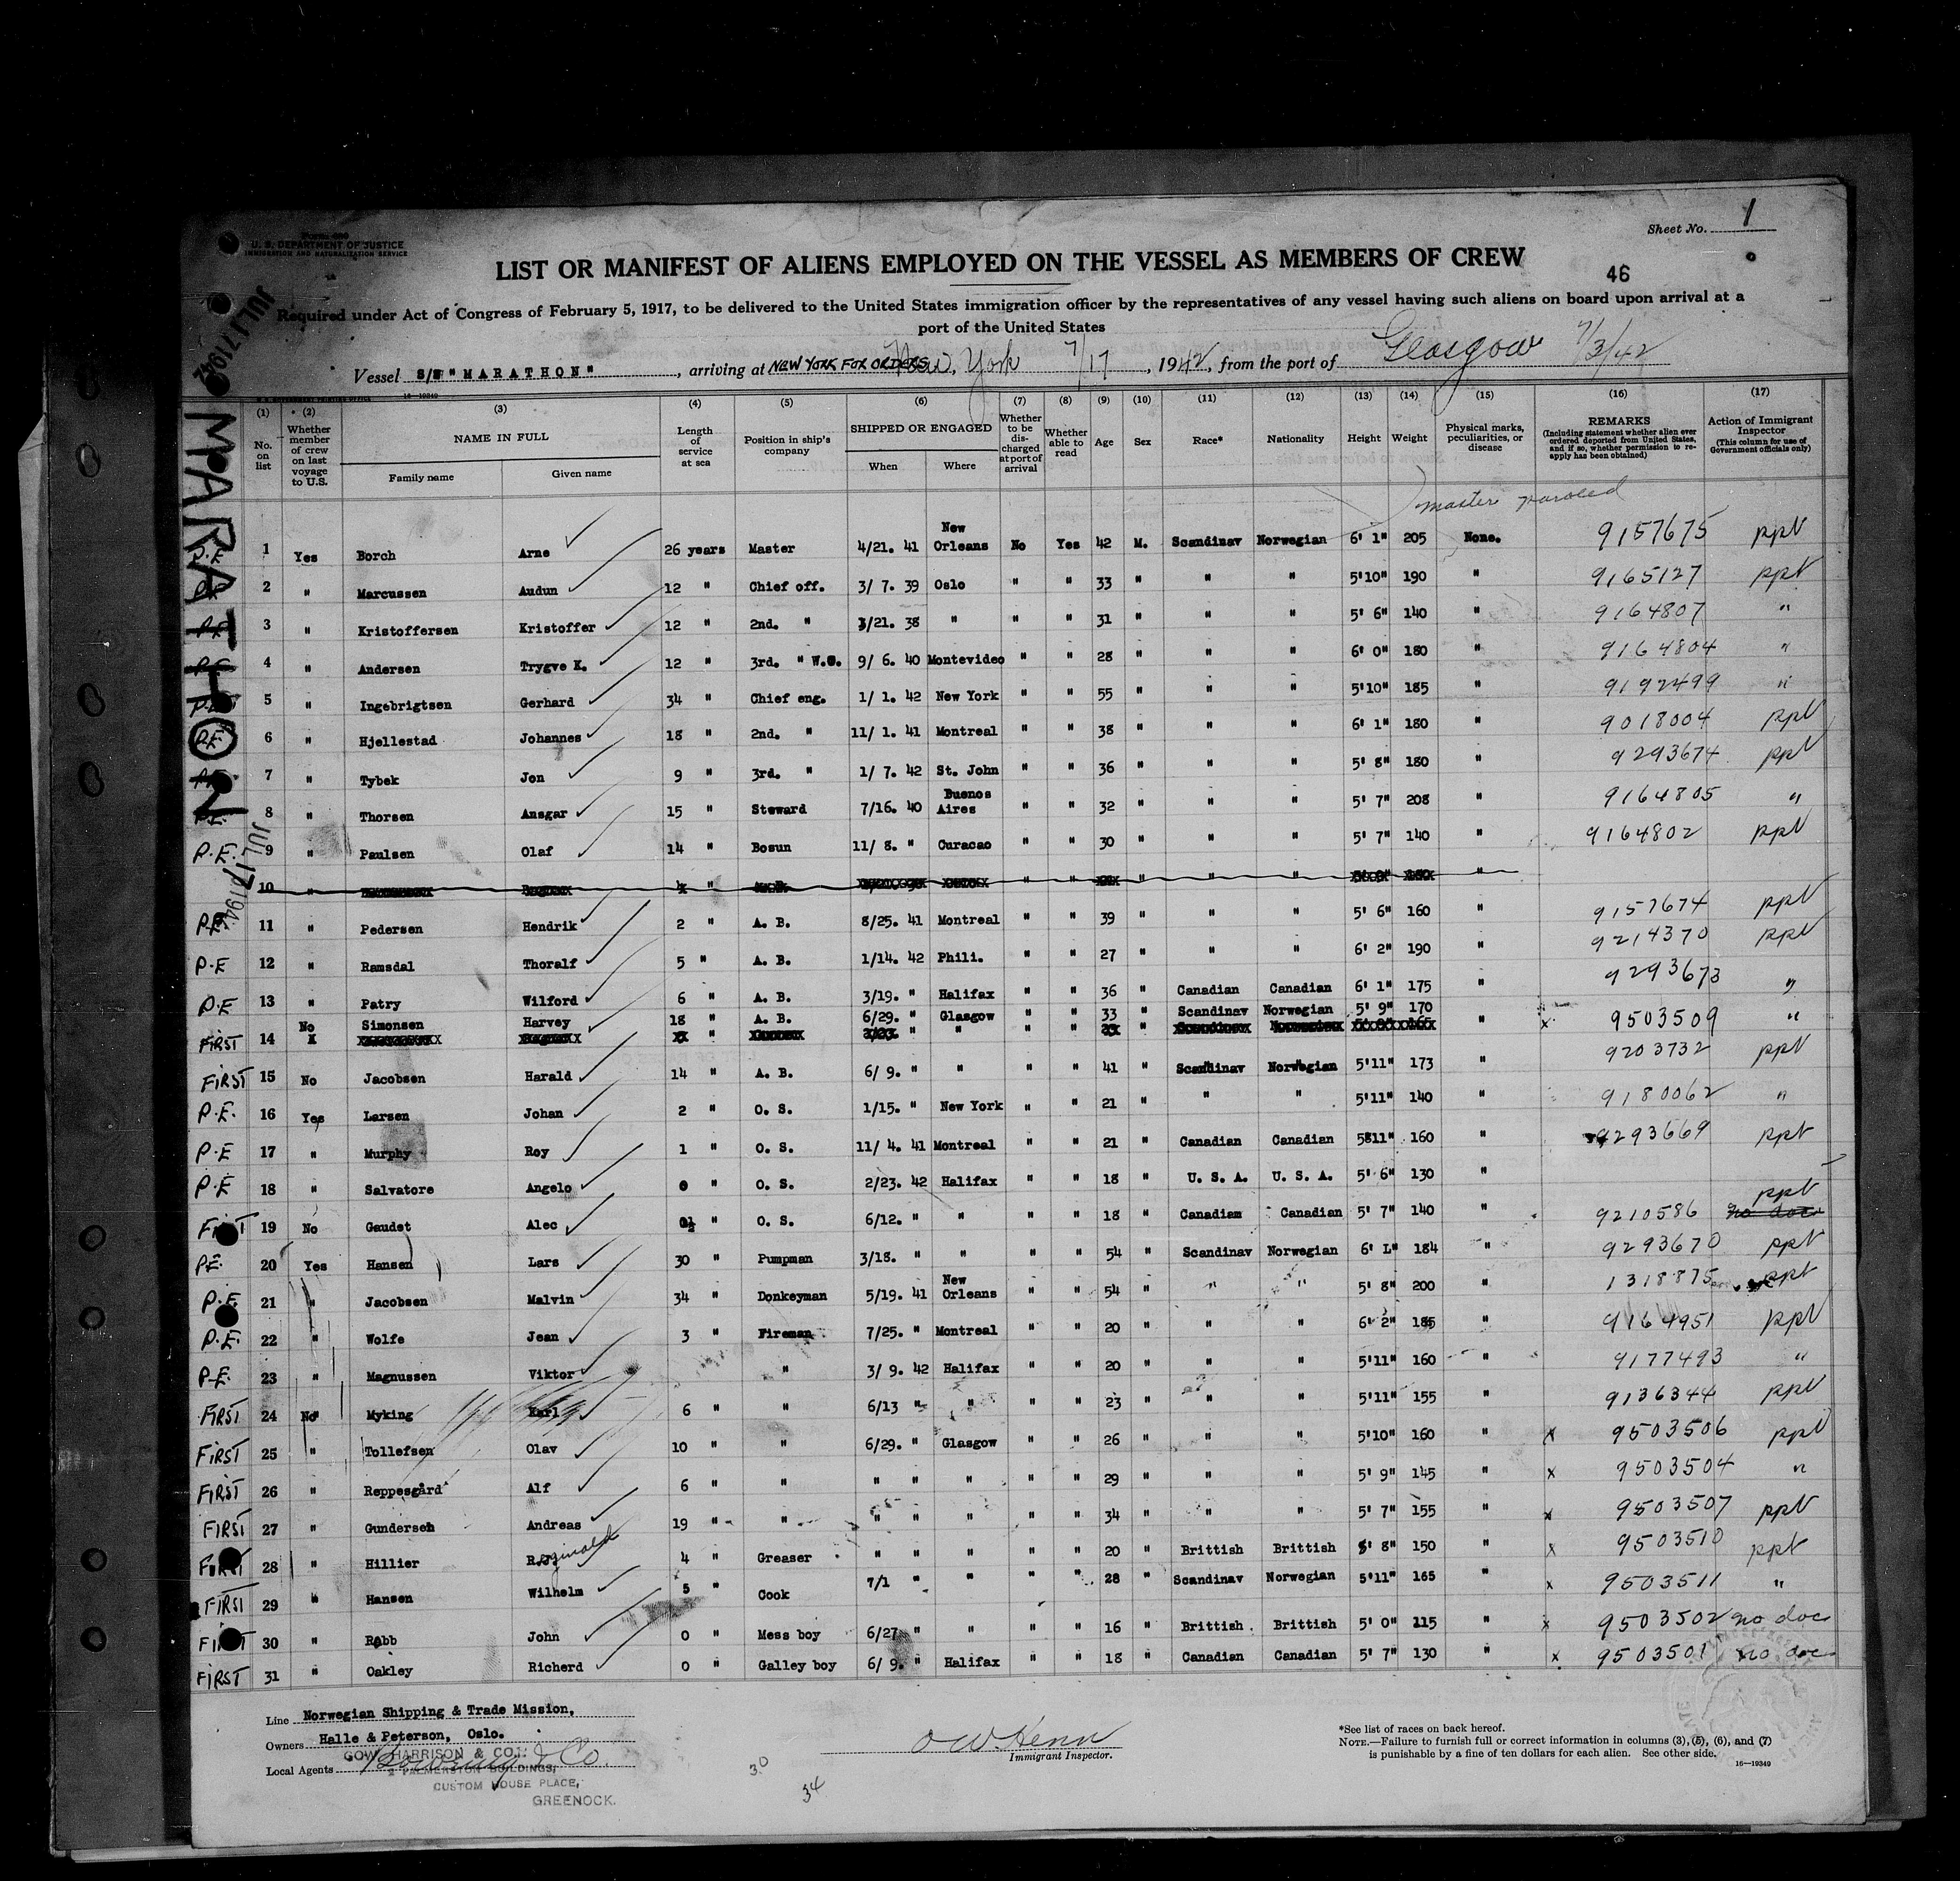 Sheet No. 1
Form 680
U. S. DEPARTMENT OF JUSTICE
IMMIGRATION AND NATURALIZATION SERVICE
LIST OR MANIFEST OF ALIENS EMPLOYED ON THE VESSEL AS MEMBERS OF CREW
46
Required under Act of Congress of February 5, 1917, to be delivered to the United States immigration officer by the representatives of any vessel having such aliens on board upon arrival at a
port of the United States
Vessel S/S "MARATHON", arriving at NEW YORK FOR ORDERS New York 7/17, 1942, from the port of Glasgow 7/3/42
16—19240
JUL 17 1942
MARATHON
JUL 17 194
(1) (2) (3) (4) (5) (6) (7) (8) (9) (10) (11) (12) (13) (14) (15) (16) (17)
No. on list
Whether member of crew on last voyage to U.S.
NAME IN FULL
Family name
Given name
Length of service at sea
Position in ship's company
SHIPPED OR ENGAGED
When
Where
Whether to be discharged at port of arrival
Whether able to read
Age
Sex
Race*
Nationality
Height
Weight
Physical marks, peculiarities, or disease
REMARKS
(Including statement whether alien ever ordered deported from United States, and if so, whether permission to reapply has been obtained)
Action of Immigrant Inspector
(This column for use of Government officials only)
master paroled
P.E 1 Yes Borch Arne 26 years Master 4/21. 41 New Orleans No Yes 42 M. Scandinav Norwegian 6' 1" 205 None. 9157675 ppt
P.E 2 " Marcussen Audun 12 " Chief off. 3/ 7. 39 Oslo " " 33 " " " 5'10" 190 " 9165127 ppt
P.E 3 " Kristoffersen Kristoffer 12 " 2nd. " 3/21. 38 " " " 31 " " " 5' 6" 140 " 9164807 "
P.E 4 " Andersen Trygve K. 12 " 3rd. " W.O. 9/ 6. 40 Montevideo " " 28 " " " 6' 0" 180 " 9164804 "
P.E 5 " Ingebrigtsen Gerhard 34 " Chief eng. 1/ 1. 42 New York " " 55 " " " 5'10" 185 " 9192499 "
P.E 6 " Hjellestad Johannes 18 " 2nd. " 11/ 1. 41 Montreal " " 38 " " " 6' 1" 180 " 9018004 ppt
P.E 7 " Tybek Jon 9 " 3rd. " 1/ 7. 42 St. John " " 36 " " " 5' 8" 180 " 9293674 ppt
P.E. 8 " Thorsen Ansgar 15 " Steward 7/16. 40 Buenos Aires " " 32 " " " 5' 7" 208 " 9164805 "
P.E. 9 " Paulsen Olaf 14 " Bosun 11/ 8. " Curacao " " 30 " " " 5' 7" 140 " 9164802 ppt
10 " " " " " " " "
P.E. 11 " Pedersen Hendrik 2 " A. B. 8/25. 41 Montreal " " 39 " " " 5' 6" 160 " 9157674 ppt
P.E 12 " Ramsdal Thoralf 5 " A. B. 1/14. 42 Phili. " " 27 " " " 6' 2" 190 " 9214370 ppt
P.E 13 " Patry Wilford 6 " A. B. 3/19. " Halifax " " 36 " Canadian Canadian 6' 1" 175 " 9293673 "
FIRST 14 No Simonsen Harvey 18 " A. B. 6/29. " Glasgow " " 33 " Scandinav Norwegian 5' 9" 170 " x 9503509 "
FIRST 15 No Jacobsen Harald 14 " A. B. 6/ 9. " " " " 41 " Scandinav Norwegian 5'11" 173 " 9203732 ppt
P.E. 16 Yes Larsen Johan 2 " O. S. 1/15. " New York " " 21 " " " 5'11" 140 " 9180062 "
P.E 17 " Murphy Roy 1 " O. S. 11/ 4. 41 Montreal " " 21 " Canadian Canadian 5811" 160 " 9293669 ppt
P.E 18 " Salvatore Angelo 0 " O. S. 2/23. 42 Halifax " " 18 " U. S. A. U. S. A. 5' 6" 130 "
FIRST 19 No Gaudet Alec 0½ " O. S. 6/12. " " " " 18 " Canadian Canadian 5' 7" 140 " 9210586 no doc ppt
P.E. 20 Yes Hansen Lars 30 " Pumpman 3/18. " " " " 54 " Scandinav Norwegian 6' L" 184 " 9293670 ppt
P.E. 21 " Jacobsen Malvin 34 " Donkeyman 5/19. 41 New Orleans " " 54 " " " 5' 8" 200 " 1318875 ppt
P.E. 22 " Wolfe Jean 3 " Fireman 7/25. " Montreal " " 20 " " " 6' 2" 185 " 9164951 ppt
P.E. 23 " Magnussen Viktor " 3/ 9. 42 Halifax " " 20 " " " 5'11" 160 " 9177493 "
FIRST 24 No" Myking Karl 6 " " 6/13 " " " " 23 " " " 5'11" 155 " 9136344 ppt
FIRST 25 " Tollefsen Olav 10 " " 6/29. " Glasgow " " 26 " " " 5'10" 160 " x 9503506 ppt
FIRST 26 " Reppesgård Alf 6 " " " " " " " 29 " " " 5' 9" 145 " x 9503504 "
FIRST 27 " Gundersen Andreas 19 " " " " " " " 34 " " " 5' 7" 155 " x 9503507 ppt
FIRST 28 " Hillier Reginald 4 " Greaser " " " " " 20 " Brittish Brittish 5' 8" 150 " x 9503510 ppt
FIRST 29 " Hansen Wilhelm 5 " Cook 7/1 " " " " 28 " Scandinav Norwegian 5'11" 165 " x 9503511 "
FIRST 30 " Robb John 0 " Mess boy 6/27. " " " " 16 " Brittish Brittish 5' 0" 115 " x 9503502 no doc
FIRST 31 " Oakley Richerd 0 " Galley boy 6/ 9. " Halifax " " 18 " Canadian Canadian 5' 7" 130 " x 9503501 no doc
Line Norwegian Shipping & Trade Mission,
Owners Halle & Peterson, Oslo.
GOW, HARRISON & CO.,
Local Agents Bowring & Co.
2 PALMERSTON BUILDINGS,
CUSTOM HOUSE PLACE,
GREENOCK.
30
34
O W Henn
Immigrant Inspector.
*See list of races on back hereof.
NOTE.—Failure to furnish full or correct information in columns (3), (5), (6), and (7)
is punishable by a fine of ten dollars for each alien. See other side.
16—19240